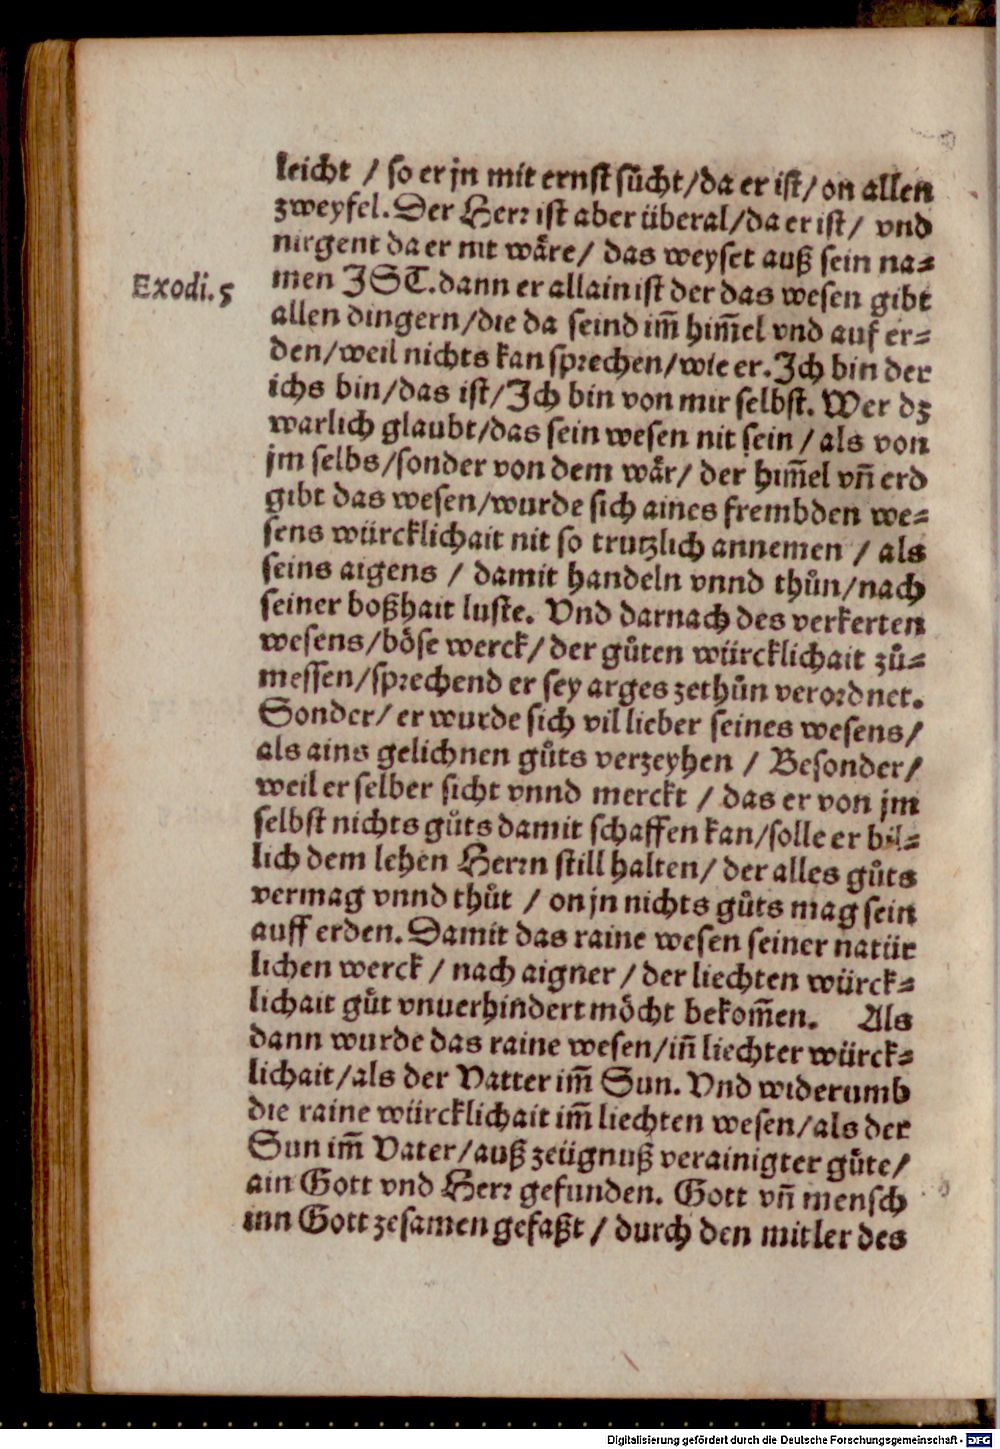 leicht / so er jn mit ernst sůcht/da er ist/on allen
zweyfel. Der Herr ist aber überal/da er ist/ vnd
nirgent da er nit wåre/ das weyset auß sein na⸗
men IST. dann er allain ist der das wesen gibt
Exodi. 5
allen dingern/die da seind im̃ him̃el vnd auf er⸗
den/weil nichts kan sprechen/wie er. Ich bin der
ichs bin/das ist/Ich bin von mir selbst. Wer dz
warlich glaubt/das sein wesen nit sein / als von
jm selbs/sonder von dem wår/ der him̃el vn̄ erd
gibt das wesen/wurde sich aines frembden we⸗
sens würcklichait nit so trutzlich annemen / als
seins aigens / damit handeln vnnd thůn/nach
seiner boßhait luste. Vnd darnach des verkerten
wesens/böse werck/ der gůten würcklichait zů⸗
messen/sprechend er sey arges zethůn verordnet.
Sonder/ er wurde sich vil lieber seines wesens/
als ains gelichnen gůts verzeyhen / Besonder/
weil er selber sicht vnnd merckt / das er von jm
selbst nichts gůts damit schaffen kan/solle er bil⸗
lich dem lehen Herrn still halten/ der alles gůts
vermag vnnd thůt / on jn nichts gůts mag sein
auff erden. Damit das raine wesen seiner natür
lichen werck / nach aigner / der liechten würck⸗
lichait gůt vnuerhindert möcht bekom̃en. Als
dann wurde das raine wesen/in̄ liechter würck⸗
lichait/als der Vatter im̃ Sun. Vnd widerumb
die raine würcklichait im̃ liechten wesen/als der
Sun im̃ Vater/auß zeügnuß verainigter gůte/
ain Gott vnd Herr gefunden. Gott vn̄ mensch
inn Gott zesamen gefaßt / durch den mitler des
Digitalisierung gefördert durch die Deutsche Forschungsgemeinschaft - DFG